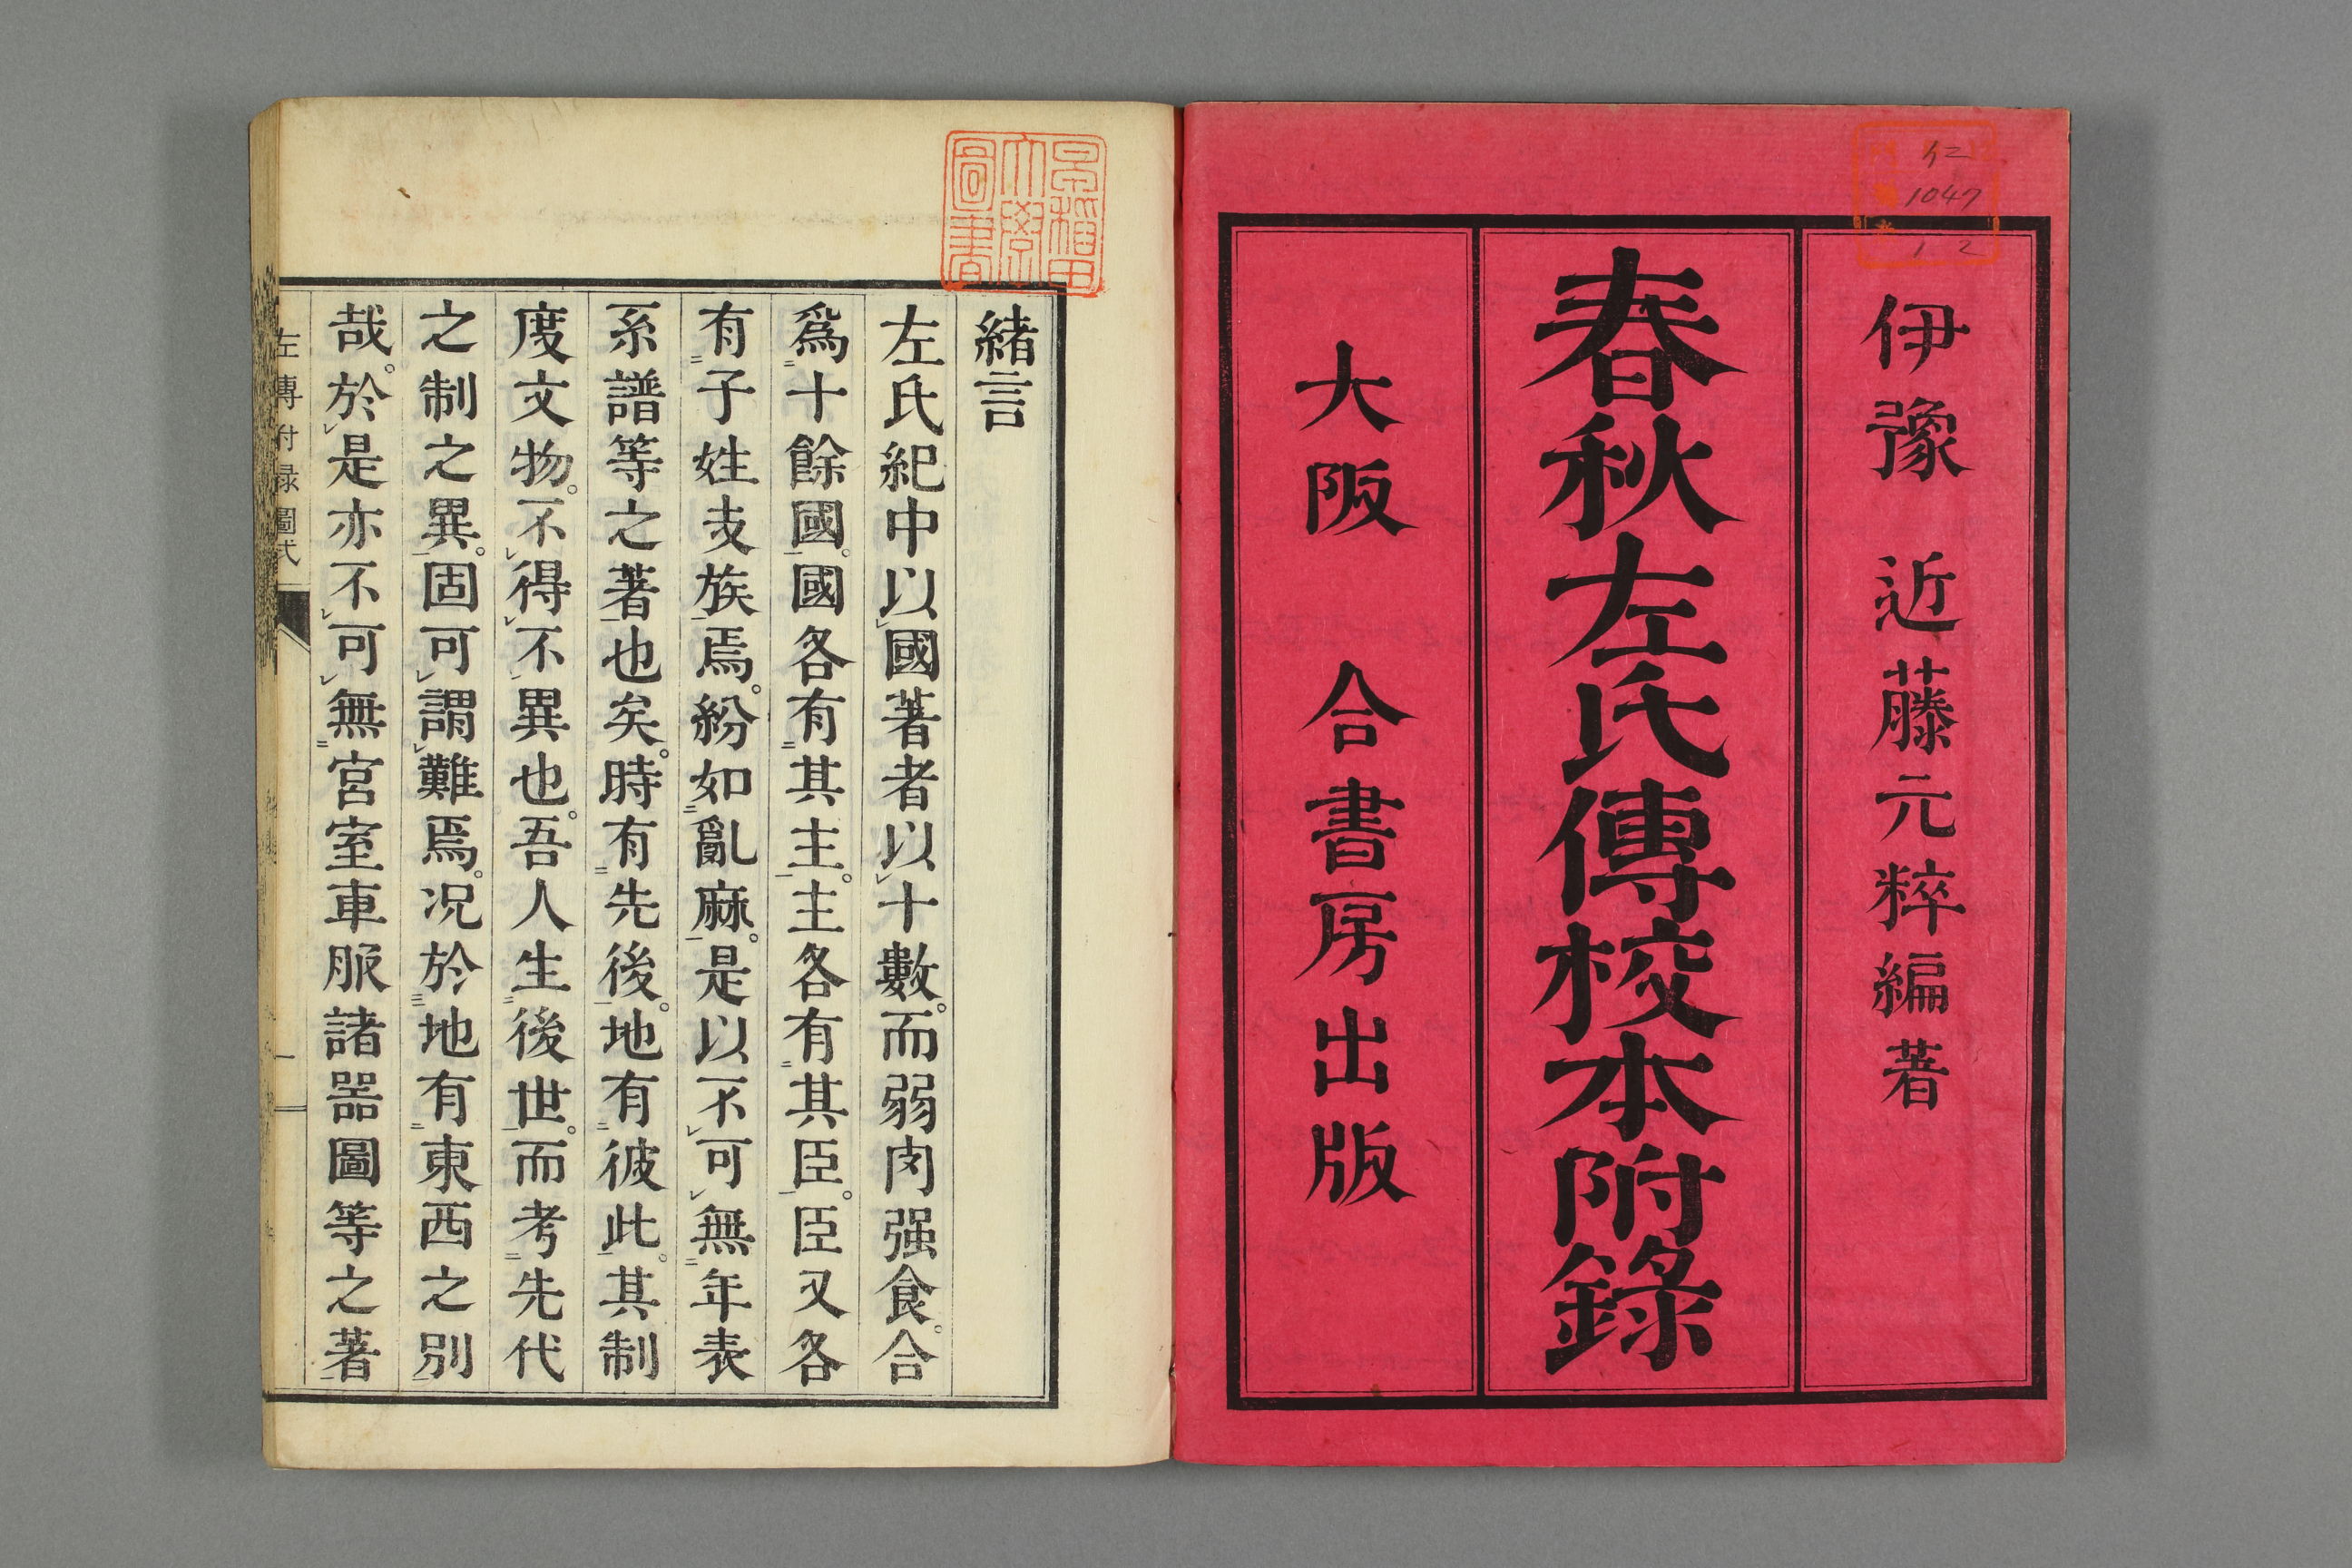 伊豫 近藤元粹編著
春秋左氏傳校本附錄
大阪 合書房出版
イ二
1047
1 2
早稲田
大學
圖書
緒言
左氏紀中以國著者以十數。而弱肉强食。合
爲十餘國。國各有其主。主各有其臣。臣又各
有子姓支族焉。紛如亂麻。是以不可無年表
系譜等之著也矣。時有先後。地有彼此。其制
度文物。不得不異也。吾人生後世。而考先代
之制之異。固可謂難焉。况於地有東西之別
哉。於是亦不可無宮室車服諸器圖等之著
左傳付録圖式
一